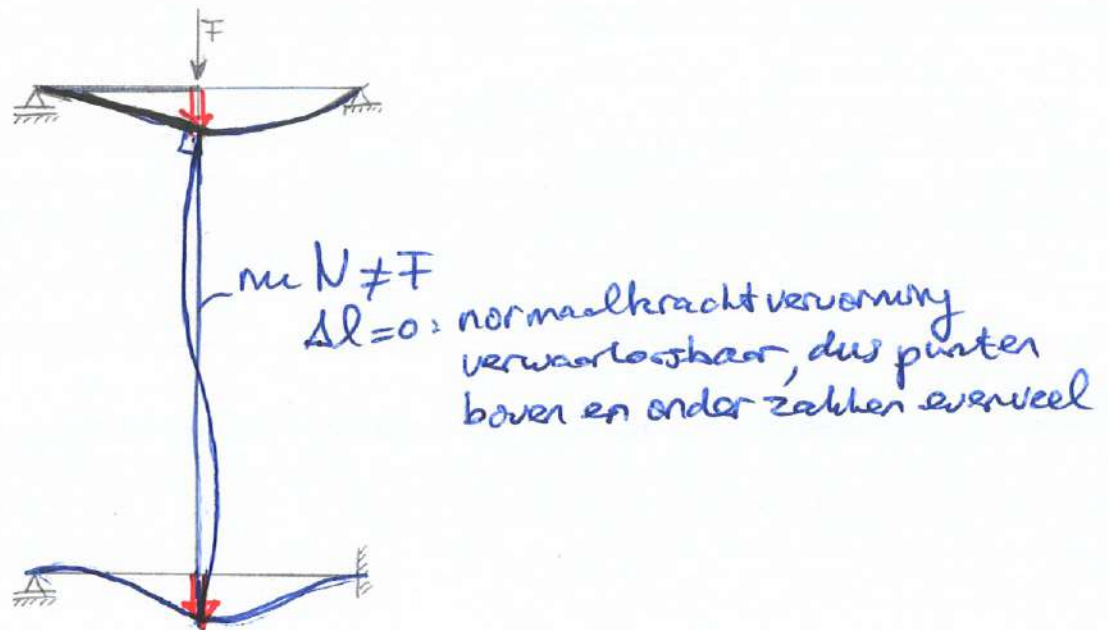 F
nu N ≠ F
Δl=0: normaalkrachtvervorming
verwaarloosbaar, dus punten
boven en onder zakken evenveel